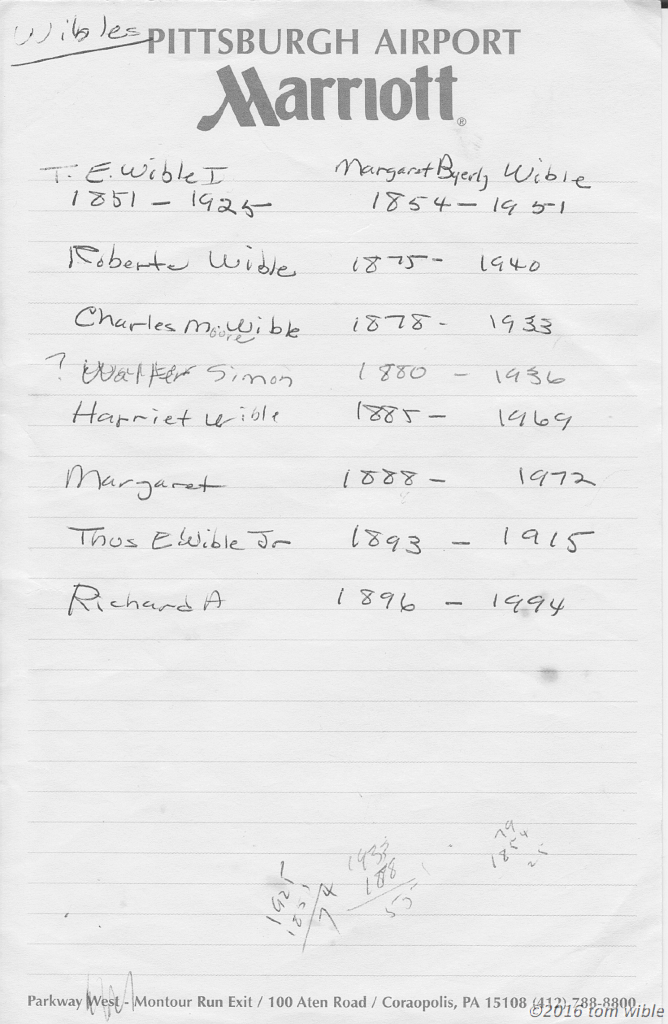 Wibles
PITTSBURGH AIRPORT
Marriott®
T. E. Wible I Margaret Byerly Wible
1851 - 1925 1854 - 1951
Roberta Wible 1875 - 1940
Charles Moore Wible 1878 - 1933
? Walter Simon 1880 - 1936
Harriet Wible 1885 - 1969
Margaret 1888 - 1972
Thos E Wible Jr 1893 - 1915
Richard A 1896 - 1994
79
1933 1854
188 25
1925 55
1851
74
Parkway West - Montour Run Exit / 100 Aten Road / Coraopolis, PA 15108 (412) 788-8800
©2016 tom wible